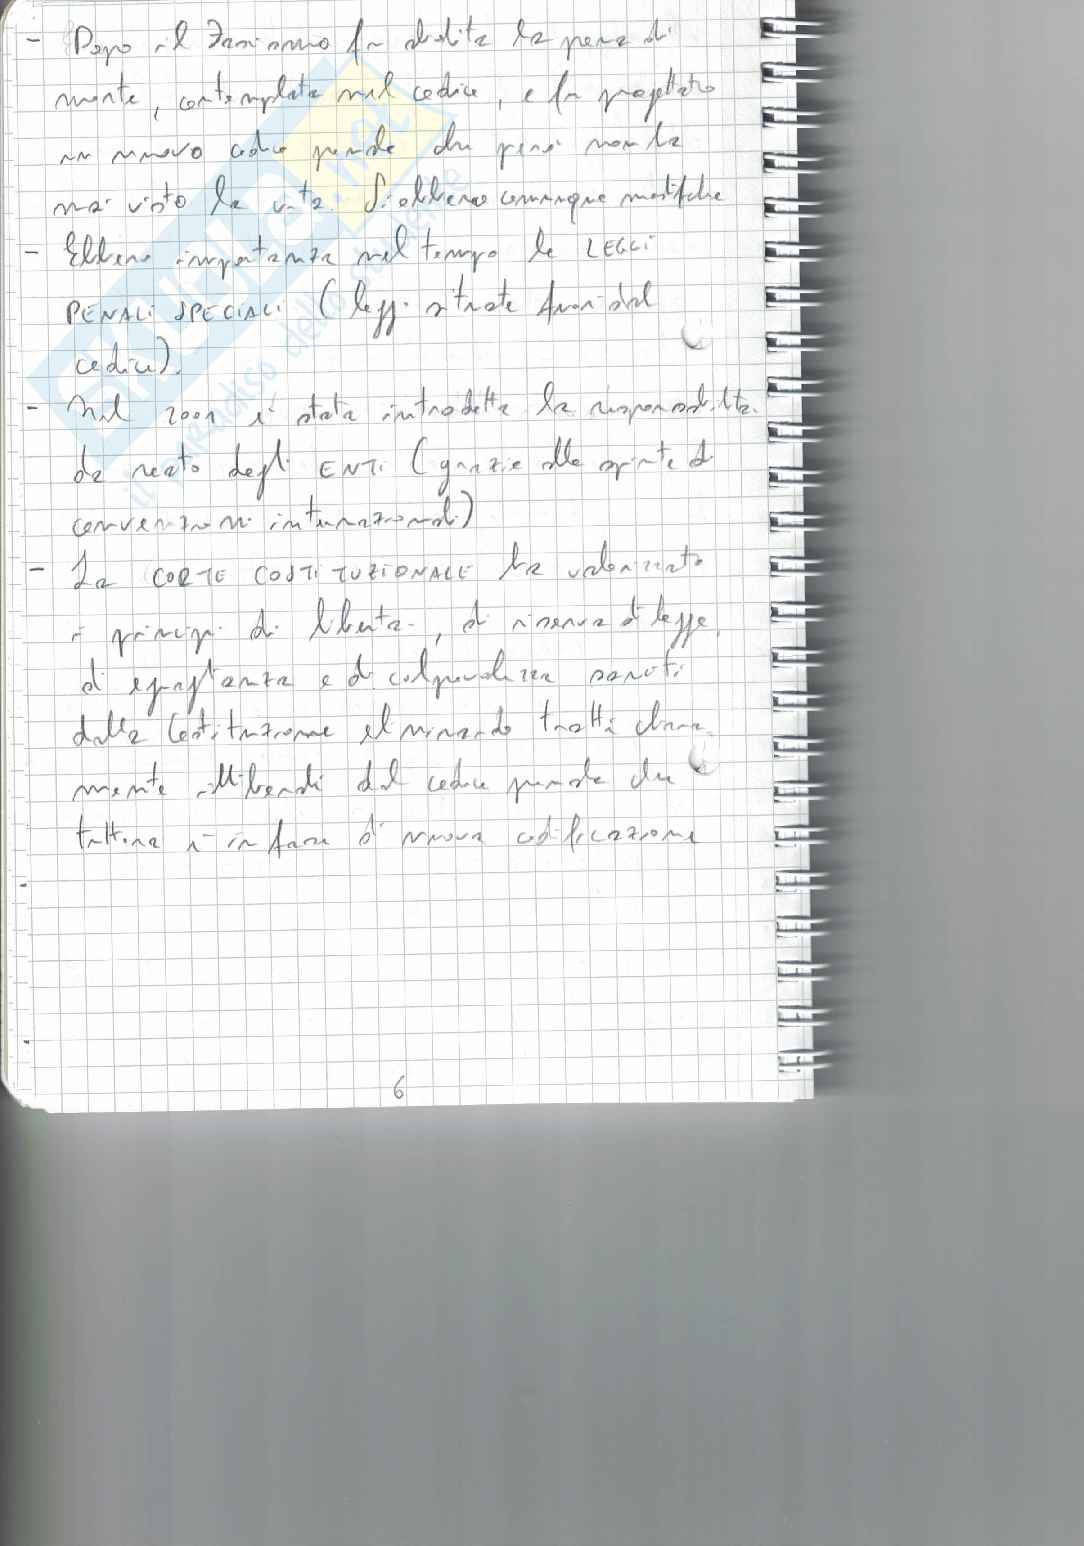 - Dopo il Fascismo fu abolita la pena di
morte, contemplata nel codice, e fu progettato
un nuovo codice penale che però non ha
mai visto la vita. Si ebbero comunque modifiche
- Ebbero importanza nel tempo le LEGGI
PENALI SPECIALI (leggi situate fuori dal
codice).
- Nel 2001 è stata introdotta la responsabilità
da reato degli ENTI (grazie alle spinte di
convenzioni internazionali)
- La CORTE COSTITUZIONALE ha valorizzato
i principi di libertà, di riserva di legge,
di eguaglianza e di colpevolezza sanciti
dalla Costituzione eliminando tratti chiara-
mente illiberali dal codice penale che
tuttora è in fase di nuova codificazione
6
skuola.net
il paradiso dello studente